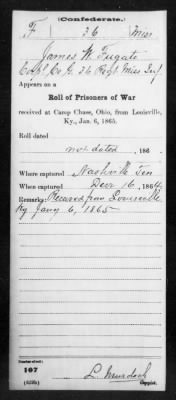 (Confederate.)
F 36 Miss
James W. Fugate
Corpl Co G. 36 Regt Miss Inf
Appears on a
Roll of Prisoners of War
received at Camp Chase, Ohio, from Louisville,
Ky., Jan. 6, 1865.
Roll dated
not dated, 186 .
Where captured Nashville Ten
When captured Decr 16, 1864
Remarks: Received from Louisville
Ky Jany 6, 1865
Number of roll:
107
(639b) L. Murdoch
Copyist.